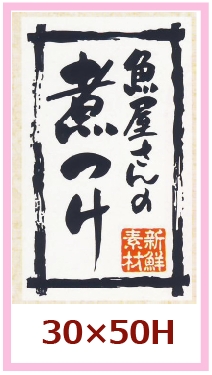 魚屋さんの
煮つけ
新鮮
素材
30×50H